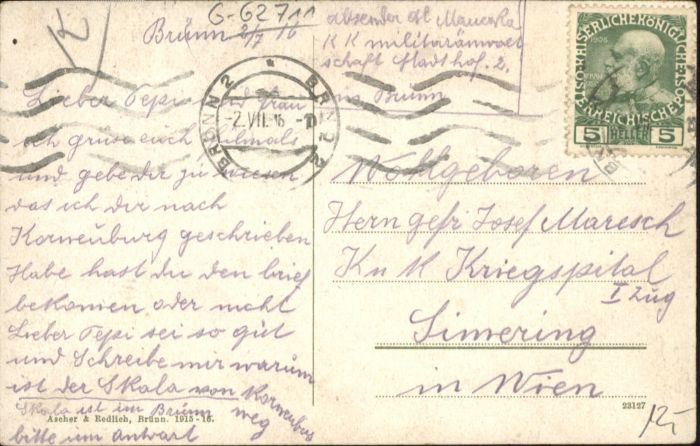 G-62711
12
Brünn 2/7 16
absender
K K militäranwalt
schaft Stadthof. 2.
in Brünn
Lieber Pepi und frau
ich grüse euch vilmals
und gebe dir zu wiesen
das ich dir nach
Korneuburg geschrieben
Habe hast du den brief
bekomen oder nicht
Lieber Pepi sei so gut
und Schreibe mir warum
ist der Skala von Korneuburg
weg
Skala ist im Brünn
bitte um antwort
BRÜNN 2 * BRNO 2
-2.VII.16
KAISERLICHE KÖNIGLICHE
ÖSTERREICHISCHE POST
1908
5 HELLER 5
Wollgeboren
Hern gefr Josef Maresch
K u K Kriegspital
I Zug
Simering
in Wien
23127
12,-
Ascher & Redlich, Brünn. 1915-16.